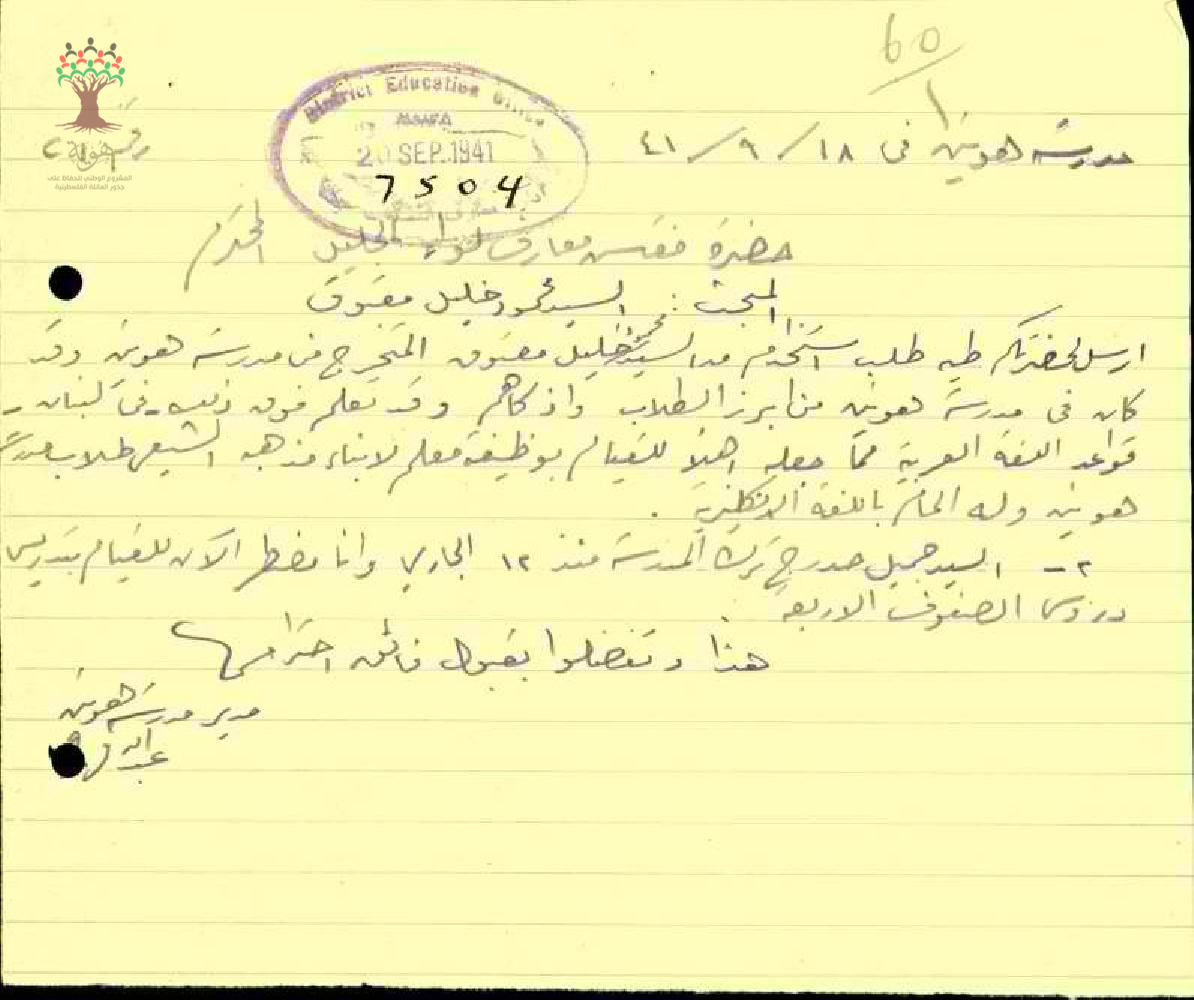 60
1
District Education Office
HAIFA
20 SEP. 1941
7504
هوية
المشروع الوطني للحفاظ على
جذور العائلة الفلسطينية
مدرسة هونين في ١٨/٩/٤١
حضرة مفتش معارف لواء الجليل المحترم
المبحث: السيد محمود خليل معتوق
ارسل لحضرتكم طيه طلب استخدام من السيد محمود خليل معتوق المتخرج من مدرسة هونين وقد
كان في مدرسة هونين من ابرز الطلاب واذكاهم وقد تعلم فوق ذلك في لبنان
قواعد اللغة العربية مما جعله اهلا للقيام بوظيفة معلم لابناء مذهبه الشيعي طلاب مدرسة
هونين وله المام باللغة الانكليزية .
٢ - السيد جميل ترك المدرسة منذ ١٢ الجاري وانا مضطر الآن للقيام بتدريس
دروس الصفوف الاربعة
هذا وتفضلوا بقبول فائق احترامي
مدير مدرسة هونين
عبد الله